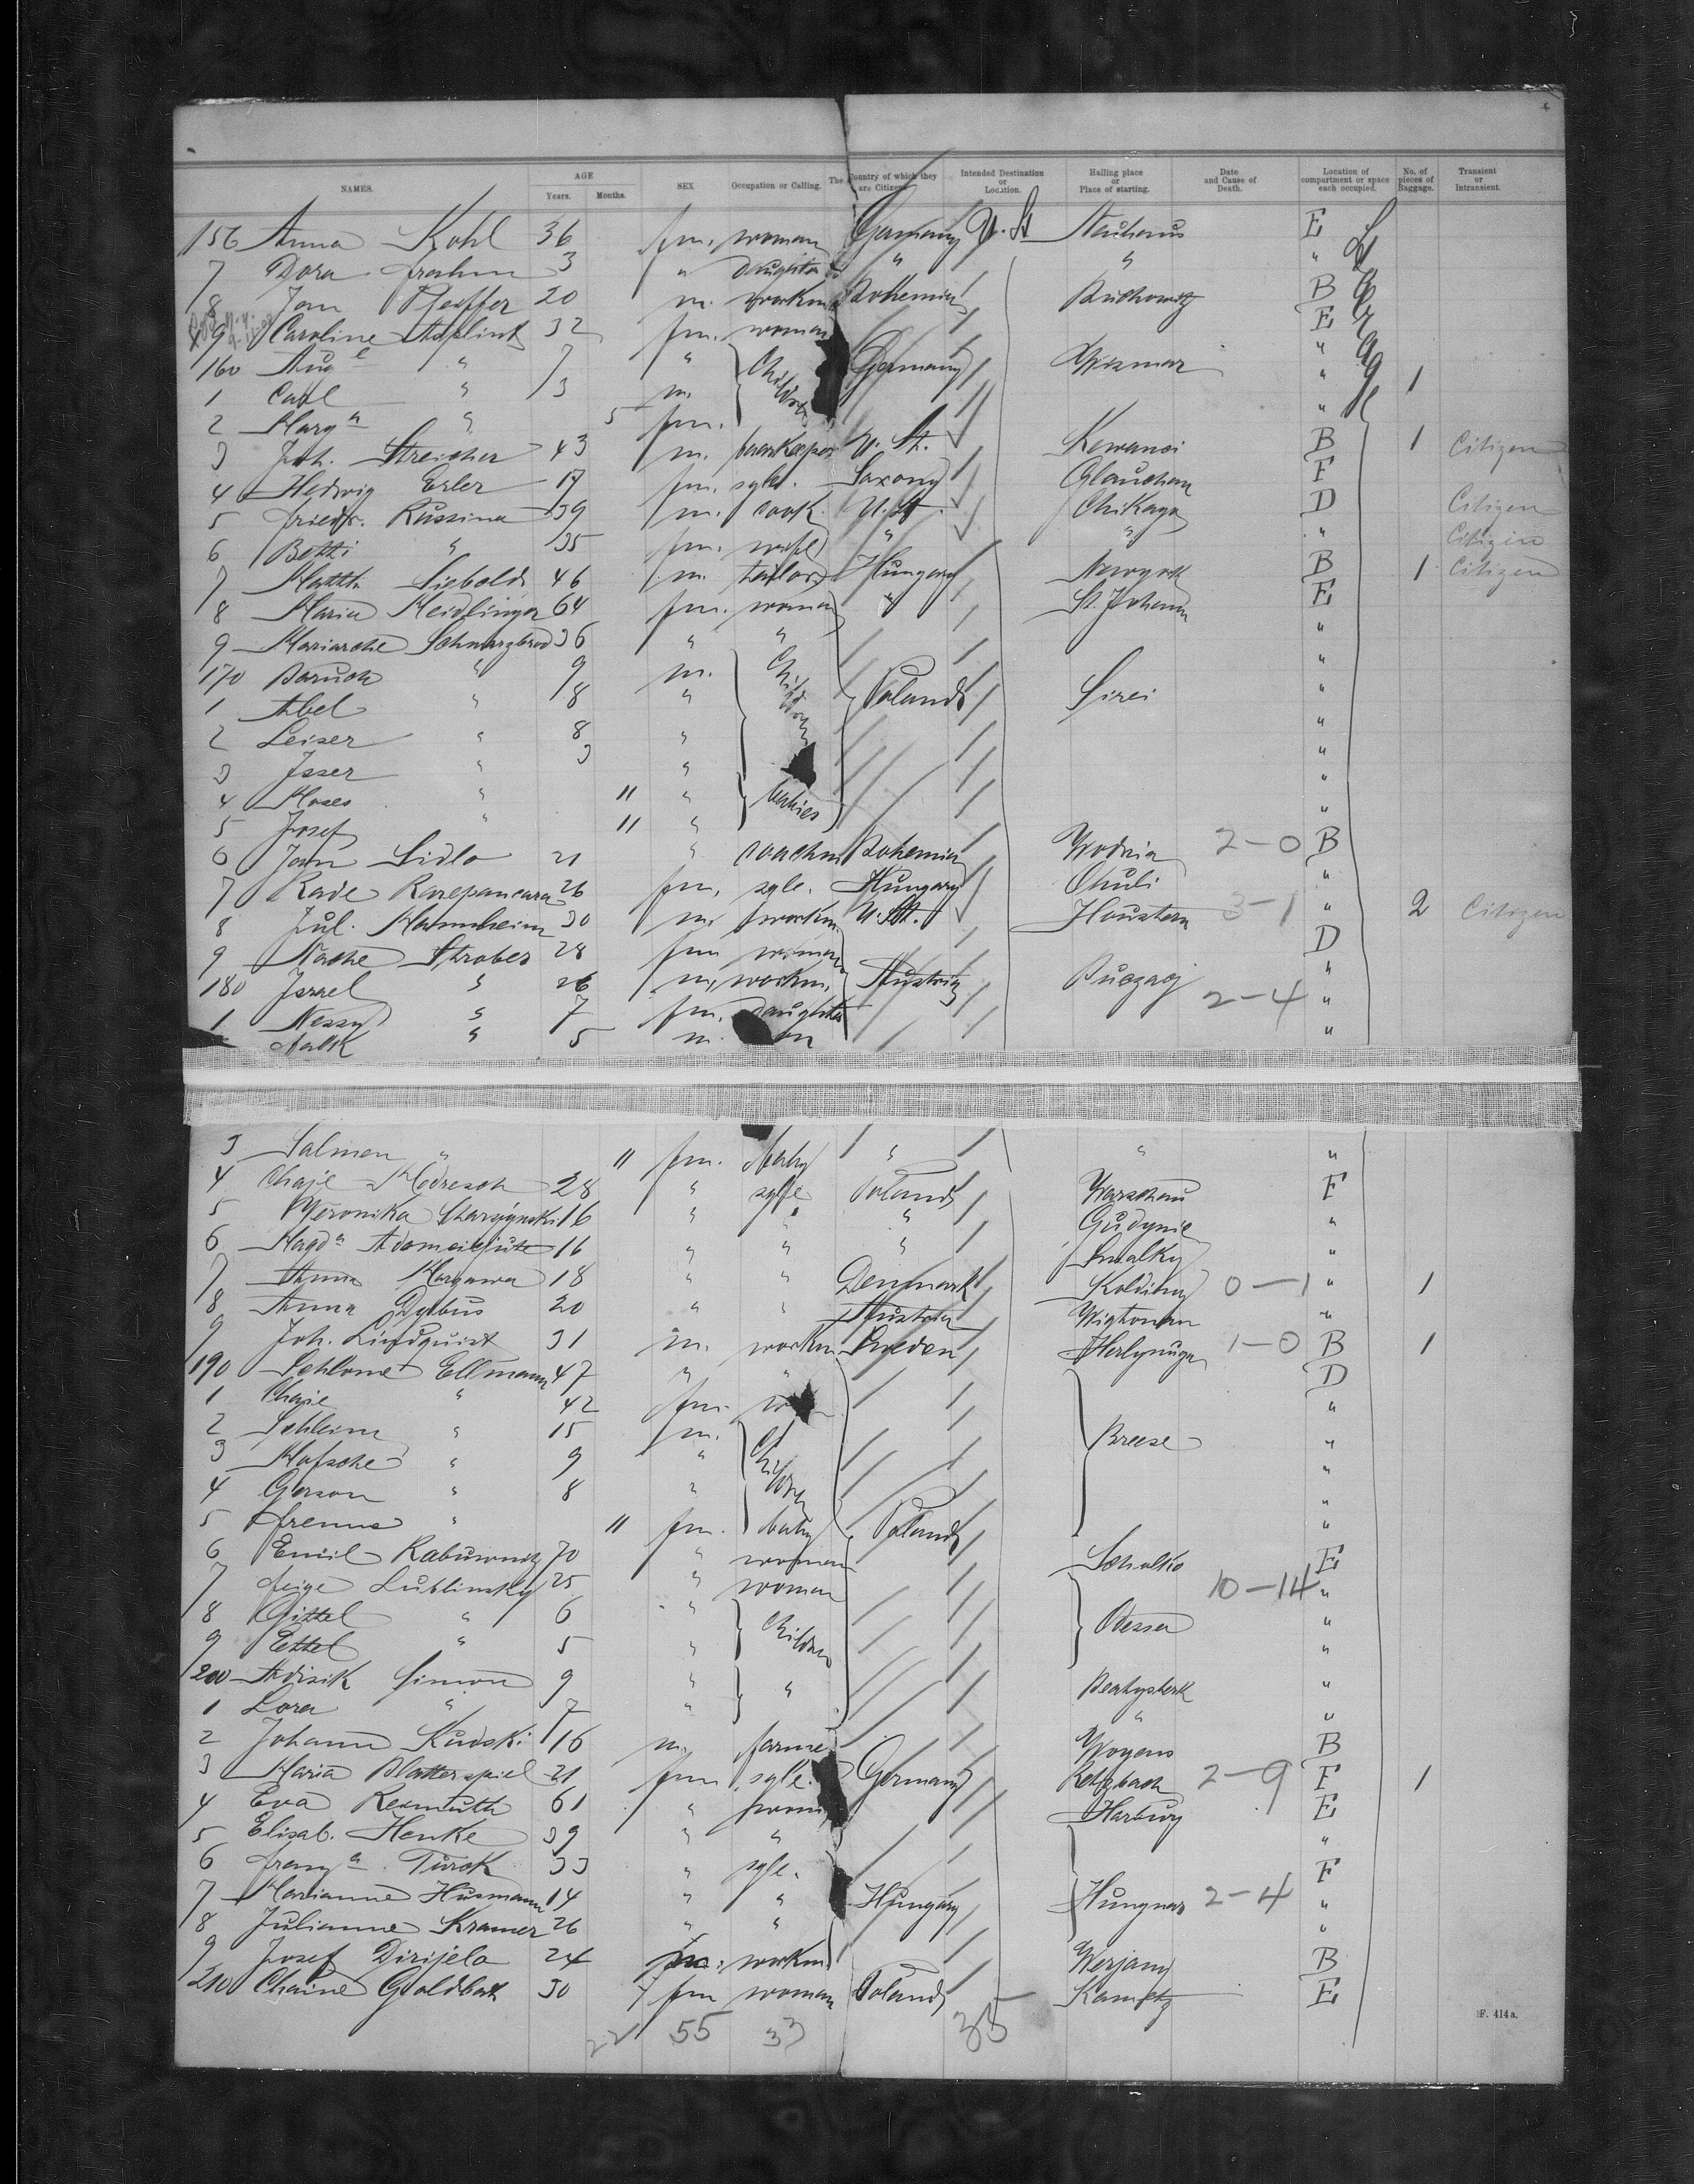 4
NAMES. AGE Years. Months. SEX Occupation or Calling. The Country of which they are Citizens. Intended Destination or Location. Hailing place or Place of starting. Date and Cause of Death. Location of compartment or space each occupied. No. of pieces of Baggage. Transient or Intransient.
156 Anna Kohl 36 fm. woman Germany U. St Neuhaus E
7 Dora Frahm 3 " daughter " " "
8 Jan Pfeiffer 20 m. workm Bohemia B
9 Caroline 32 fm. woman E
160 Aug e " 7 " Children Germany Wismar "
1 Carl " 3 m. " 1
2 Marg a " 5 fm. "
3 Joh. Streicher 43 m. U. St. Kewanoi B 1 Citizen
4 Hedwig Erler 17 fm. sgle. Saxony Glauchau F
5 Friedr. Russina 39 m. cook U. St. Chikago D Citizen
6 Betti " 35 fm. wife " " " Citizen
7 Matth Siebold 46 m tailor Hungary Newyork B 1 Citizen
8 Maria Meidlinger 64 fm. woman " St. Johann E
9 Mariasche Schwarzbrod 36 " " "
170 Baruch " 9 m. Children Poland Sirei "
1 Abel " 8 " "
2 Leiser " 8 " "
3 Isser " 3 " "
4 Moses " 11 " babies "
5 Josef " 11 " "
6 Jan Sidlo 21 " coachm Bohemia Wodnia 2-0 B
7 Rade 26 fm. sgle. Hungary Ohuli "
8 Jul. Mannheim 30 m. workm. U. St. Houston 3-1 " 2 Citizen
9 Nache Strober 28 fm woman D
180 Israel " 26 m. workm. Austria Buczacz "
1 Nessy " 7 fm. daughter 2-4 "
Falk " 5 m. son "
3 Salmen " 11 fm. baby " " "
4 Chaje Modresch 28 " sgle Poland Warschau F
5 Weronika 16 " " " Gudynie "
6 Magd a 16 " " " Suwalky "
7 Anna 18 " " Denmark Kolding 0-1 " 1
8 Anna Dybus 20 " " Austria "
9 Joh. Lindquist 31 m. workm Sweden 1-0 B 1
190 Schlome Ellmann 47 " " D
1 Chaie " 42 fm. "
2 Schleim " 15 m. Children Breese "
3 " 9 " "
4 Gerson " 8 " "
5 " 11 fm. baby Poland "
6 Emil 70 " woman E
7 Feige Lublinsky 25 " woman 10-14 "
8 Gittel " 6 " Children Odessa "
9 Ettel " 5 " "
200 Simon 9 " " "
1 Lora " 7 " " "
2 Johann Kudski 16 m. farmer Woyens B
3 Maria Blatterspiel 21 fm sgle. Germany Retzbach 2-9 F 1
4 Eva Rexmuth 61 " woman Harburg E
5 Elisab. Henke 39 " " "
6 Franz a Turok 33 " sgle. F
7 Marianne Husmann 14 " " Hungary 2-4 "
8 Julianne Kramer 26 " " "
9 Josef Dirijela 24 m. workm B
210 Chaine Goldbart 30 fm woman Poland E
22 55 33 35
F. 414a.